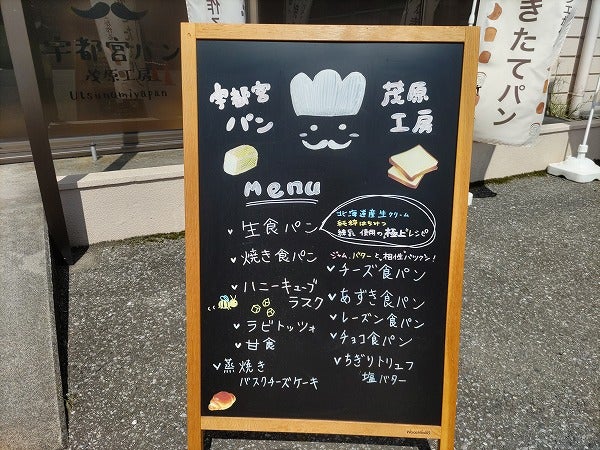 宇都宮パン
茂原工房
Utsunomiyapan
きたてパン
宇都宮
パン
茂原
工房
menu
生食パン
北海道産生クリーム
純粋はちみつ
練乳 使用の極上レシピ
焼き食パン
ジャム、バターと、相性バツグン!
チーズ食パン
ハニーキューブ
ラスク
あずき食パン
レーズン食パン
ラビトッツォ
チョコ食パン
甘食
蒸焼き
バスクチーズケーキ
ちぎりトリュフ
塩バター